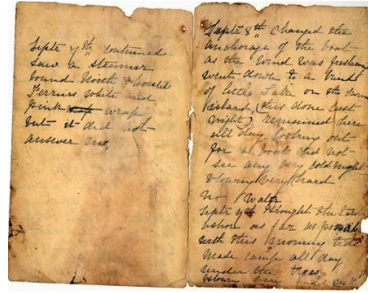 Septr 7th continued
saw a steamer
bound North & hoisted
white and
pink wrap
but it did not
answer me
Septr 8th changed the
anchorage of the boat
as the wind was
went down to a
of little Lake on the same
island (this done last
night) remained here
all day looking out
for a boat did not
see any very cold night
blowing very hard
No Water
Septr 9th brought the
ashore as far as
with this morning tide
made camp all day
under the trees
blowing very